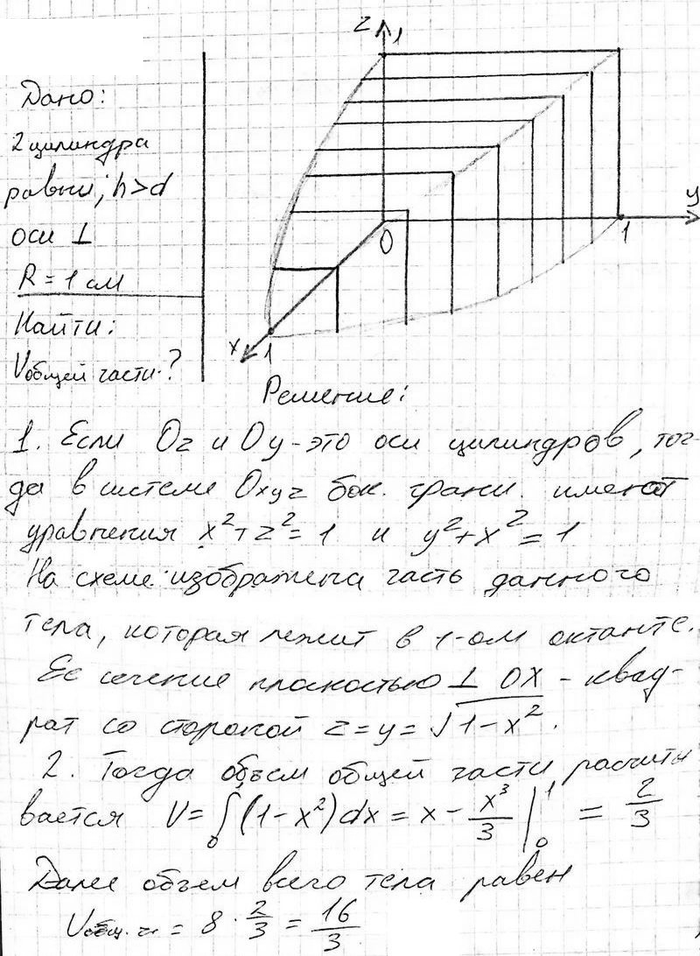 Дано:
2 цилиндра
равны; h>d
оси ⊥
R = 1 см
Найти:
Vобщей части-?
z
1
y
0
1
x
1
Решение:
1. Если Oz и Oy-это оси цилиндров, тог-
да в системе Oxyz бок. грани. имеют
уравнения x²+z²=1 и y²+x²=1
На схеме изображена часть данного
тела, которая лежит в 1-ом октанте.
Её сечение плоскостью ⊥ OX - квад-
рат со стороной z=y=√1-x².
2. Тогда объем общей части расчиты
вается V=∫₀¹(1-x²)dx = x - x³/3 |₀¹ = 2/3
Далее объем всего тела равен
Vобщ. ч = 8 · 2/3 = 16/3